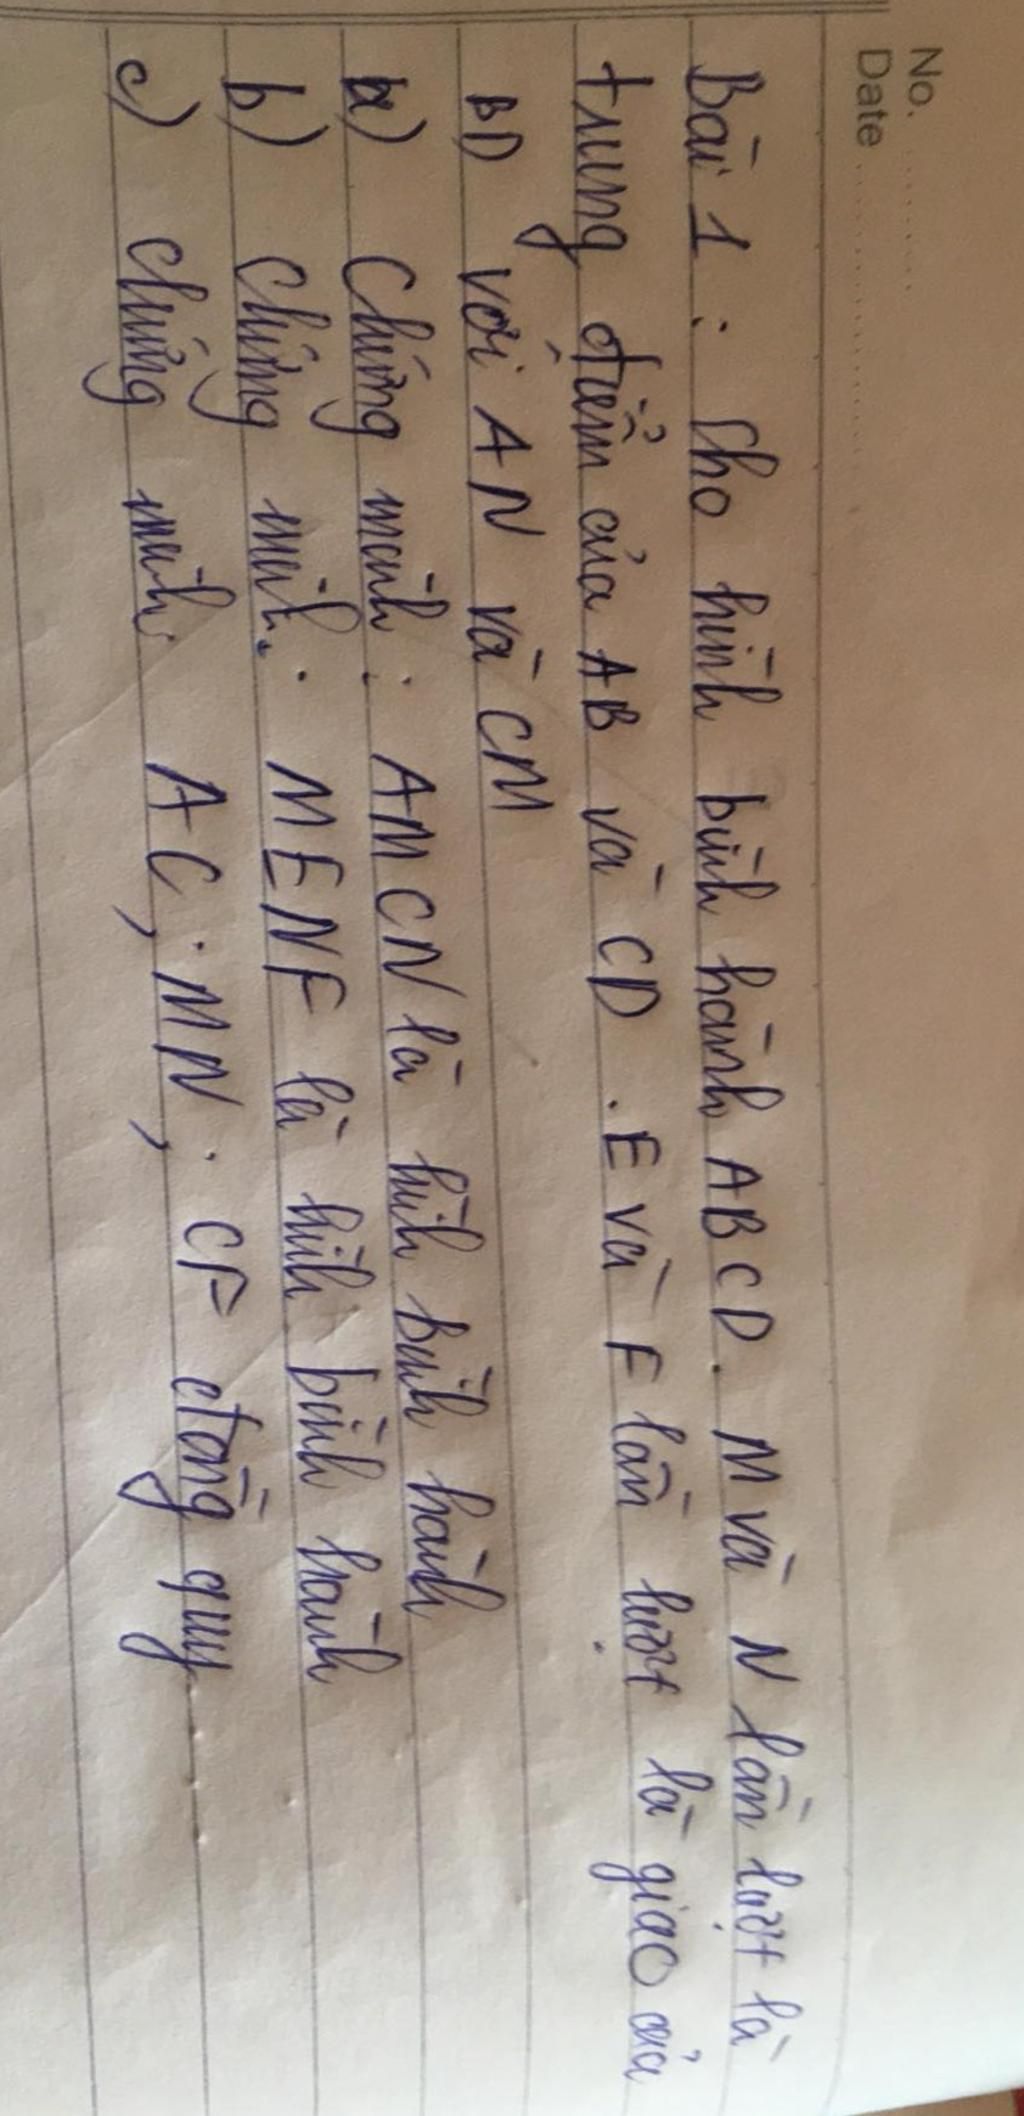 No.
Date
Bài 1 : Cho hình bình hành ABCD. M và N lần lượt là
trung điểm của AB và CD . E và F lần lượt là giao của
BD với AN và CM
a) Chứng minh : AMCN là hình bình hành
b) Chứng minh : MENF là hình bình hành
c) Chứng minh AC ; MN ; CF đồng quy